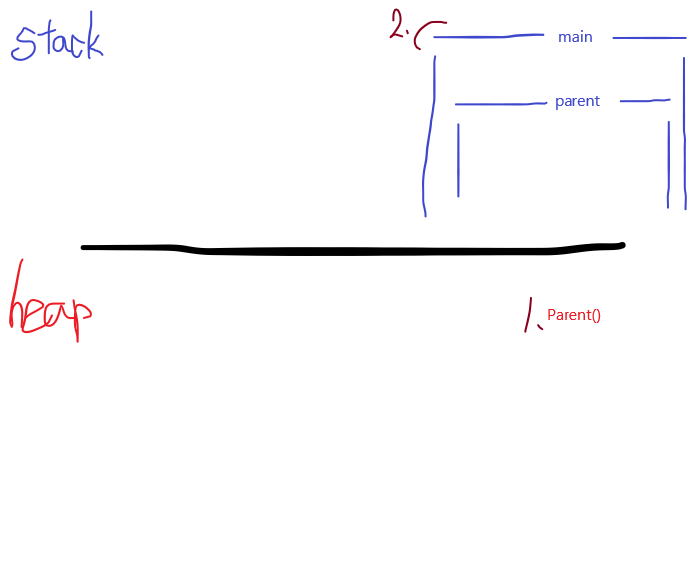 stack
2.
main
parent
heap
1. Parent()